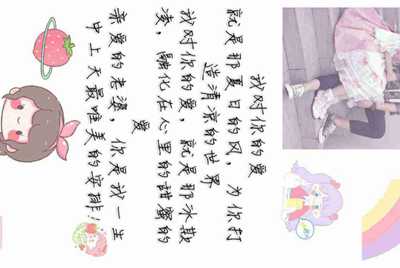 我对你的爱
就是那夏日的风，为你打
造清凉的世界
我对你的爱，就是那冰激
凌，融化在心里的甜蜜的
爱
亲爱的老婆，你是我一生
中上天最唯美的安排！